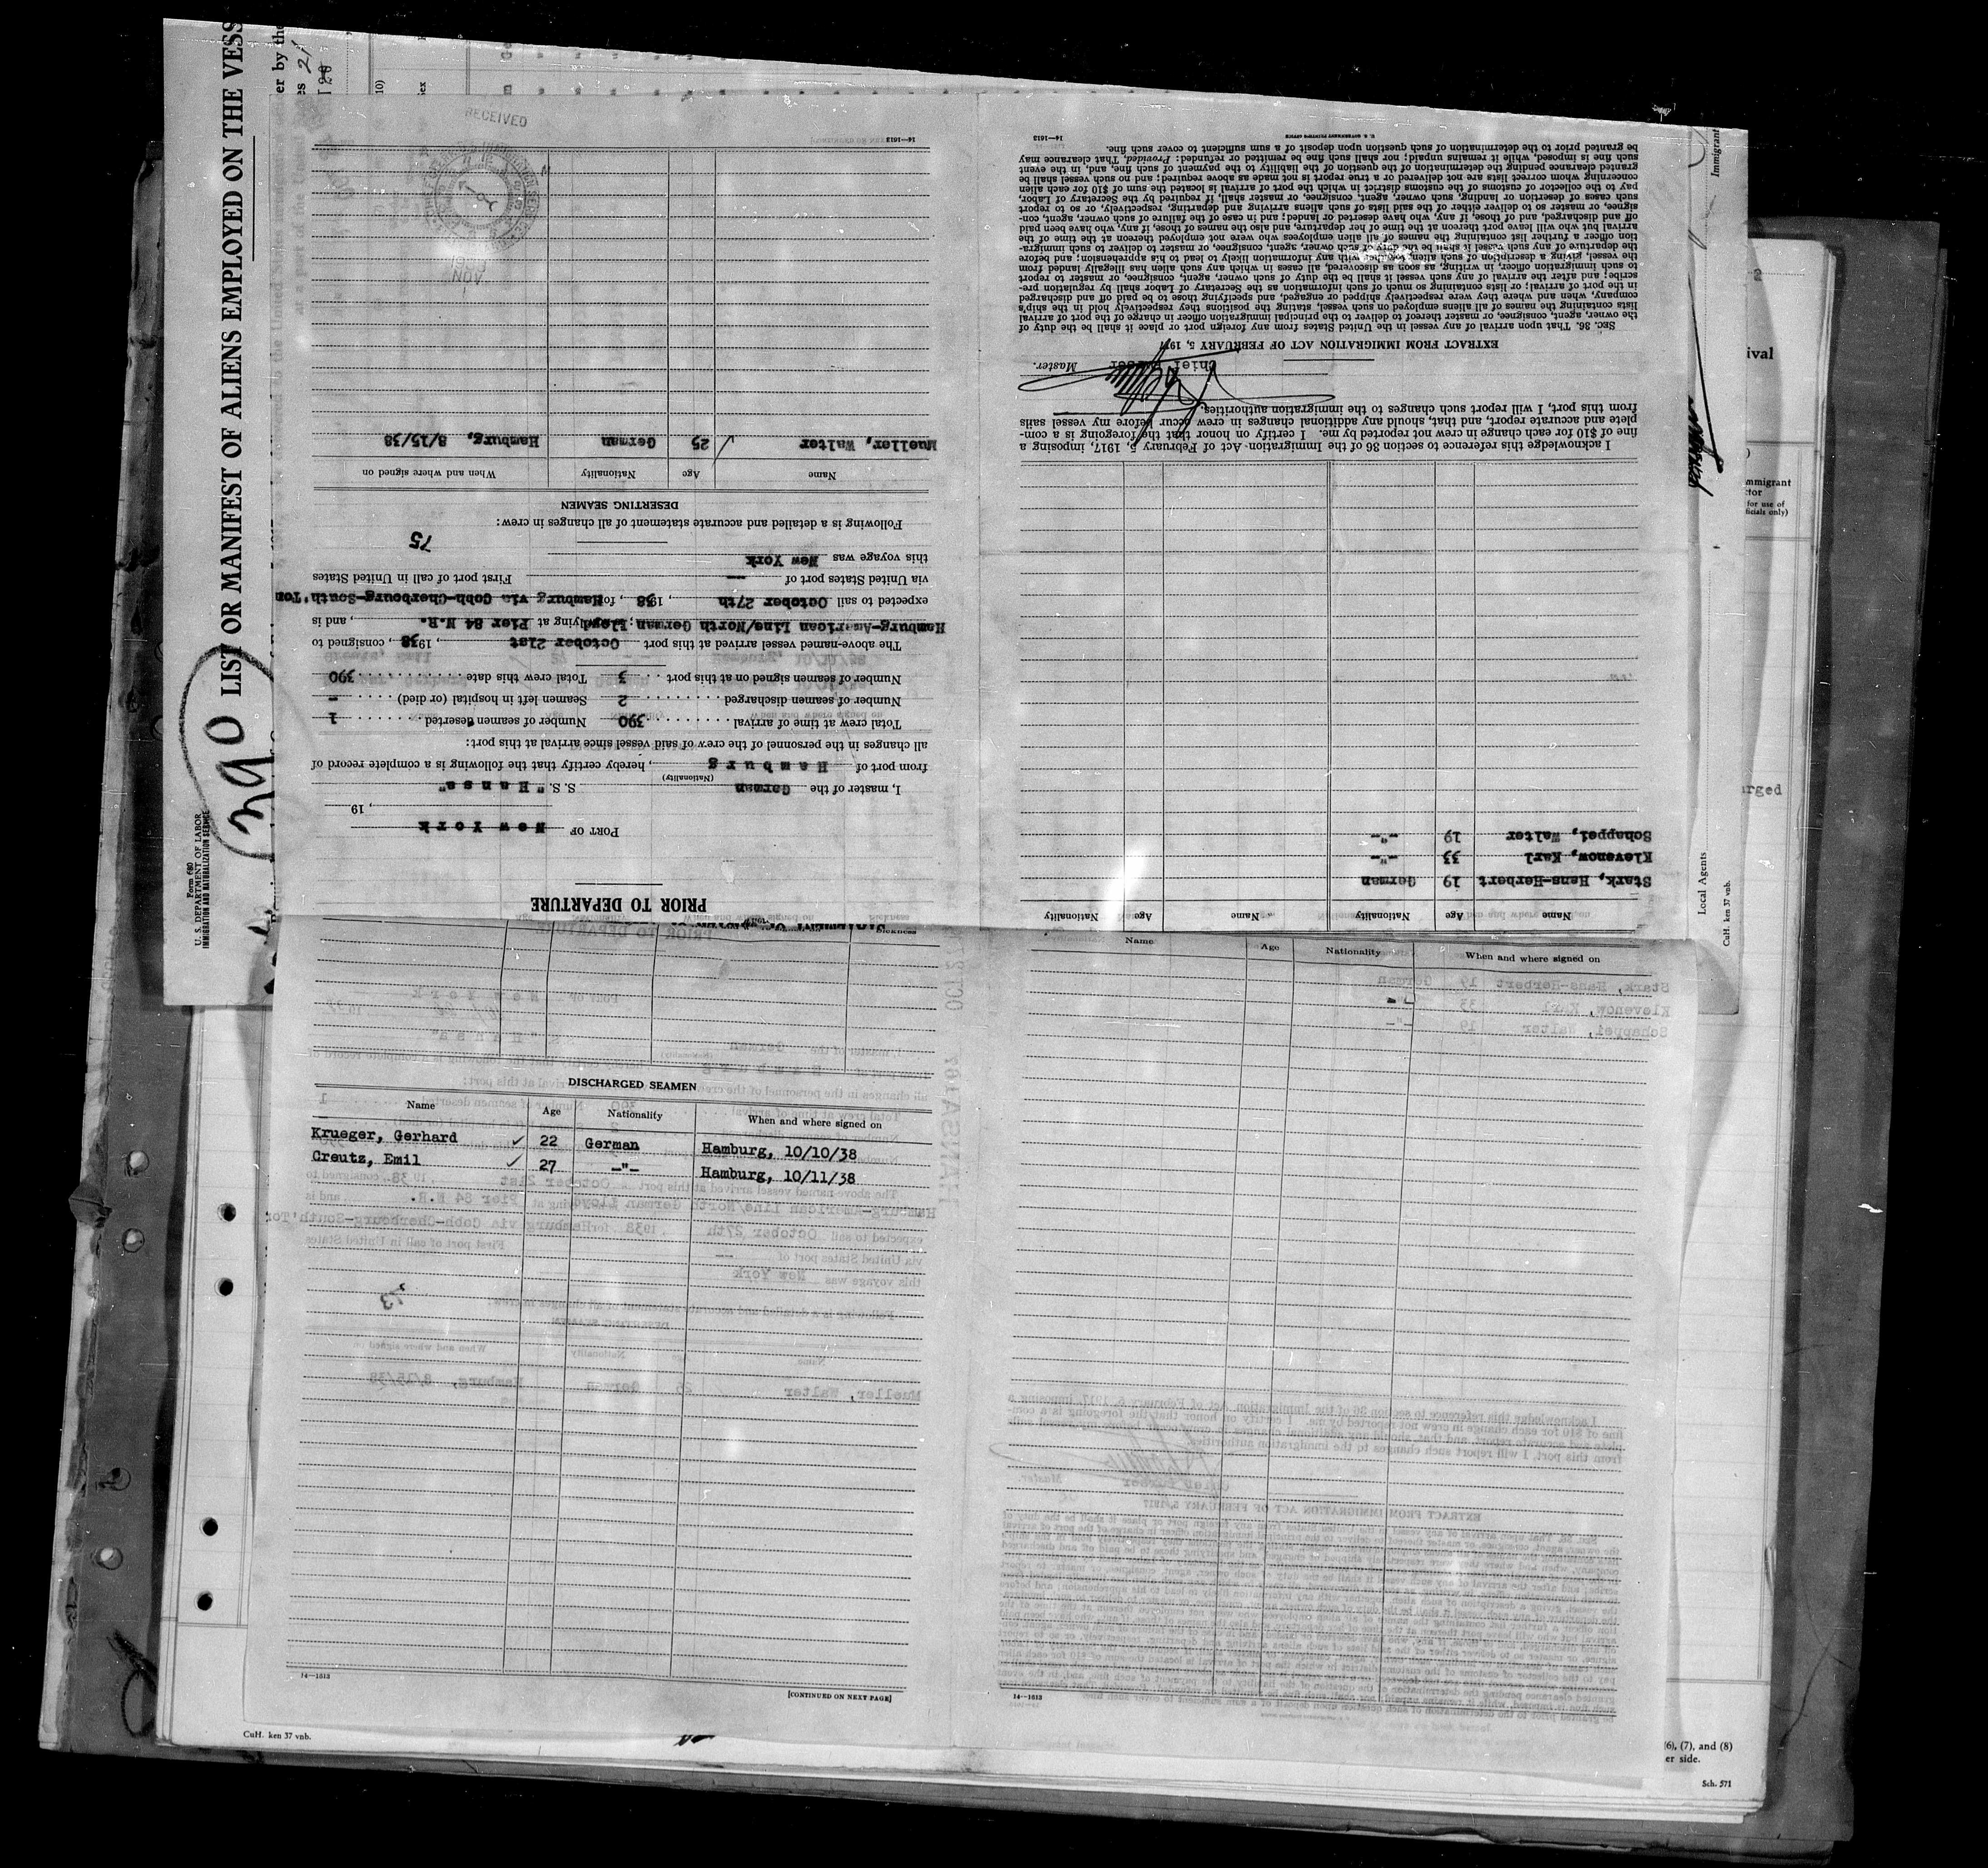 LIST OR MANIFEST OF ALIENS EMPLOYED ON THE VESS
Form 680
U. S. DEPARTMENT OF LABOR
IMMIGRATION AND NATURALIZATION SERVICE
390
er by the
RECEIVED
NOV
PRIOR TO DEPARTURE
PORT OF New York , 19
I, master of the German S. S. "Hansa"
(Nationality)
from port of Hamburg , hereby certify that the following is a complete record of
all changes in the personnel of the crew of said vessel since arrival at this port:
Total crew at time of arrival 390 Number of seamen deserted 1
Number of seamen discharged 2 Seamen left in hospital (or died) -
Number of seamen signed on at this port 3 Total crew this date 390
The above-named vessel arrived at this port October 21st , 1938, consigned to
Hamburg-American Line/North German Lloyd; lying at Pier 84 N.R. , and is
expected to sail October 27th , 1938, for Hamburg via Cobh-Cherbourg-South'Ton
via United States port of -- First port of call in United States
this voyage was New York
75
Following is a detailed and accurate statement of all changes in crew:
DESERTING SEAMEN
Name Age Nationality When and where signed on
Mueller, Walter 25 German Hamburg, 8/15/38
14—1613
Name Age Nationality Name Age Nationality
Stark, Hans-Herbert 19 German
Klevenow, Karl 33 -"-
Schappei, Walter 19 -"-
I acknowledge this reference to section 36 of the Immigration Act of February 5, 1917, imposing a
fine of $10 for each change in crew not reported by me. I certify on honor that the foregoing is a com-
plete and accurate report, and that, should any additional changes in crew occur before my vessel sails
from this port, I will report such changes to the immigration authorities.
Chief Purser Master.
EXTRACT FROM IMMIGRATION ACT OF FEBRUARY 5, 1917
SEC. 36. That upon arrival of any vessel in the United States from any foreign port or place it shall be the duty of
the owner, agent, consignee, or master thereof to deliver to the principal immigration officer in charge of the port of arrival
lists containing the names of all aliens employed on such vessel, stating the positions they respectively hold in the ship's
company, when and where they were respectively shipped or engaged, and specifying those to be paid off and discharged
in the port of arrival; or lists containing so much of such information as the Secretary of Labor shall by regulation pre-
scribe; and after the arrival of any such vessel it shall be the duty of such owner, agent, consignee, or master to report
to such immigration officer, in writing, as soon as discovered, all cases in which any such alien has illegally landed from
the vessel, giving a description of such alien, together with any information likely to lead to his apprehension; and before
the departure of any such vessel it shall be the duty of such owner, agent, consignee, or master to deliver to such immigra-
tion officer a further list containing the names of all alien employees who were not employed thereon at the time of the
arrival but who will leave port thereon at the time of her departure, and also the names of those, if any, who have been paid
off and discharged, and of those, if any, who have deserted or landed; and in case of the failure of such owner, agent, con-
signee, or master so to deliver either of the said lists of such aliens arriving and departing, respectively, or so to report
such cases of desertion or landing, such owner, agent, consignee, or master shall, if required by the Secretary of Labor,
pay to the collector of customs of the customs district in which the port of arrival is located the sum of $10 for each alien
concerning whom correct lists are not delivered or a true report is not made as above required; and no such vessel shall be
granted clearance pending the determination of the question of the liability to the payment of such fine, and, in the event
such fine is imposed, while it remains unpaid; nor shall such fine be remitted or refunded: Provided, That clearance may
be granted prior to the determination of such question upon deposit of a sum sufficient to cover such fine.
U. S. GOVERNMENT PRINTING OFFICE 14—1613
DISCHARGED SEAMEN
Name Age Nationality When and where signed on
Krueger, Gerhard 22 German Hamburg, 10/10/38
Creutz, Emil 27 -"- Hamburg, 10/11/38
14—1613
[CONTINUED ON NEXT PAGE]
Name Age Nationality When and where signed on
14—1613
CuH. ken 37 vnb.
Local Agents
CuH. ken 37 vnb.
Immigrant
ival
mmigrant
ctor
for use of
ficials only)
arged
(6), (7), and (8)
er side.
Sch. 571